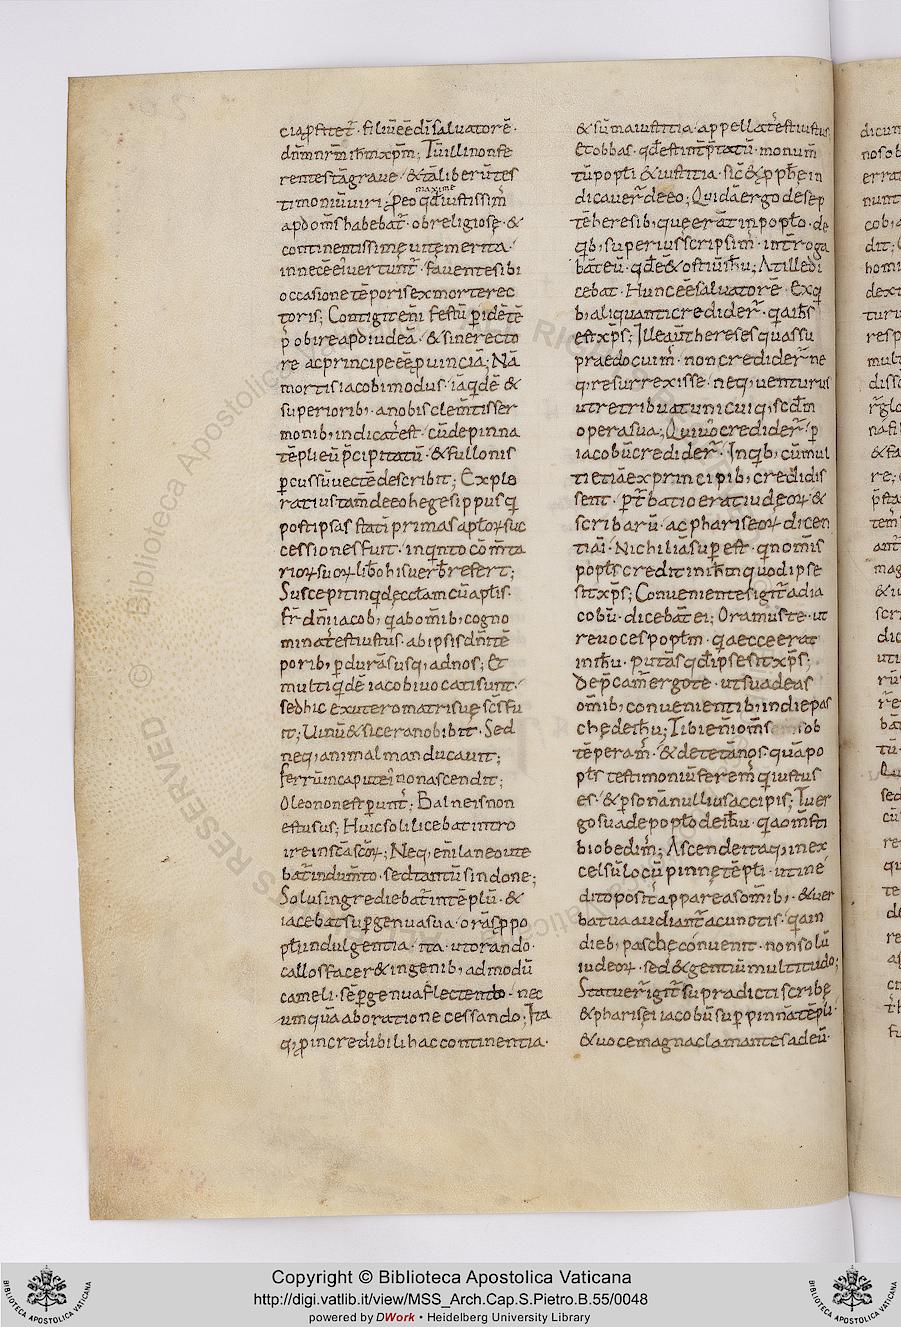 cia ꝓfitet᷒· filiū eē dī saluatorē·
dñm nr̄m ih̄m xp̄m; Tū illi non fe
rentes tā graue / & tā liberū tes
timoniū uiri; ꝑ eo qđ iustissim̄
maxime
ap̄d om̄s habebat᷒· ob religiosę· &
continentissimę uitę merita·
in necē ei᷒ uertunt᷒· fauente sibi
occasione tēporis ex morte rec
toris; Contigit eñi festū ꝑ idē tē
p᷒ obire apđ iudeā· & sine recto
re ac principe eē ꝓuinciā; Nā
mortis iacobi modus· iā qđē &
superiorib;· a nobis clem̄tis ser
monib; indicat᷒ est· cū de pinna
tēpli eū p̄cipitatū· & fullonis
ꝑcussū uecte describit; Explo
ratius tam̄ de eo hegesippus qi
post ipsas stati᷒ primas apłoꝝ suc
cessiones fuit· in qinto com̄ta
rioꝝ suoꝝ libro his uerbis refert;
Suscepit inq̇d eccłam cū apłis·
fr̄ dñi iacob; q ab omib; cogno
minat᷒ est iustus· ab ipsis dñi tē
porib; ꝑdurās usq; ad nos; Et
multi qidē iacobi uocati sunt·
sed hic ex utero matris suę scs̄ fu
it; Uinū & siceram n̄ bibit; Sed
neq; animal manducauit;
ferrū in caput ei᷒ non ascendit;
Oleo non est ꝑunct᷒; Balneis non
est usus; Huic soli licebat intro
ire in scā scōꝝ; Neq; eñi laneo ute
bat᷒ indum̄to· sed tantū sindone;
Solus ingrediebat᷒ in tēplū· &
iacebat suꝑ genua sua· orās ꝓ po
pli indulgentia· ita ut orando·
callos facer& in genib; ad modū
cameli· sēꝑ genua flectendo· nec
umquā ab oratione cessando; Ita
q; ꝓ incredibili hac continentia·
& sūma iustitia· appellat᷒ est iustus
Et obbas· qđ est int᷒p̄tatū· monum̄
tū popłi & iustitia· sic̄ & ꝓphe in
dicauer᷒ de eo; Quidā ergo de sep
tē heresib; que erāt in popło· de
qib; superius scripsim᷒· int᷒roga
bāt eū· qđ eē & ostiū ih̄u; At ille di
cebat· Hunc eē saluatorē· Ex qi
b; aliquanti crediderr᷒· q̇a ih̄s
est xp̄s; Ille aūt hereses quas su
pra edocuim᷒· non crediderr᷒ ne
q; resurrexisse· neq; uenturus
ut retribuat unicuiq; scđm
opera sua; Quiūo crediderr᷒· ꝑ
iacobū crediderr᷒· In qib; cū mul
ti etiā ex principib; credidis
sent· ꝑt᷒batio erat iudeoꝝ &
scribarū· ac phariseoꝝ dicen
tiū· Nichil iā suꝑest· qin om̄is
popłs credit in ih̄m quod ipse
sit xp̄s; Conuenientes igit᷒ ad ia
cobū· dicebāt ei; Oramus te· ut
reuoces popłm· q̇a ecce errat
in ih̄u· putās qđ ipse sit xp̄s;
Dep̄cam̄r ergo te· ut suadeas
om̄ib; conuenientib; in die pas
chę de ih̄u; Tibi eñi om̄s ob
tēperam᷒· & de te tā nos· quā po
płs testimoniū ferem᷒ q iustus
es· & ꝑsonā nullius accipis; Tu er
go suade popło de ih̄u· q̇a om̄s ti
bi obedim᷒; Ascende itaq; in ex
celsū locū pinnę tēpłi· ut in e
dito posit᷒ appareas om̄ib;· & uer
ba tua audiant᷒ a cunctis· q̇a in
dieb; paschę conuenit· non solū
iudeoꝝ· sed & gentiū multitudo;
Statuer᷒ igit᷒ supradicti scribę
& pharisęi iacobū suꝑ pinnā tēpli·
& uoce magna clamantes ad eū·
Copyright © Biblioteca Apostolica Vaticana
http://digi.vatlib.it/view/MSS_Arch.Cap.S.Pietro.B.55/0048
powered by DWork • Heidelberg University Library